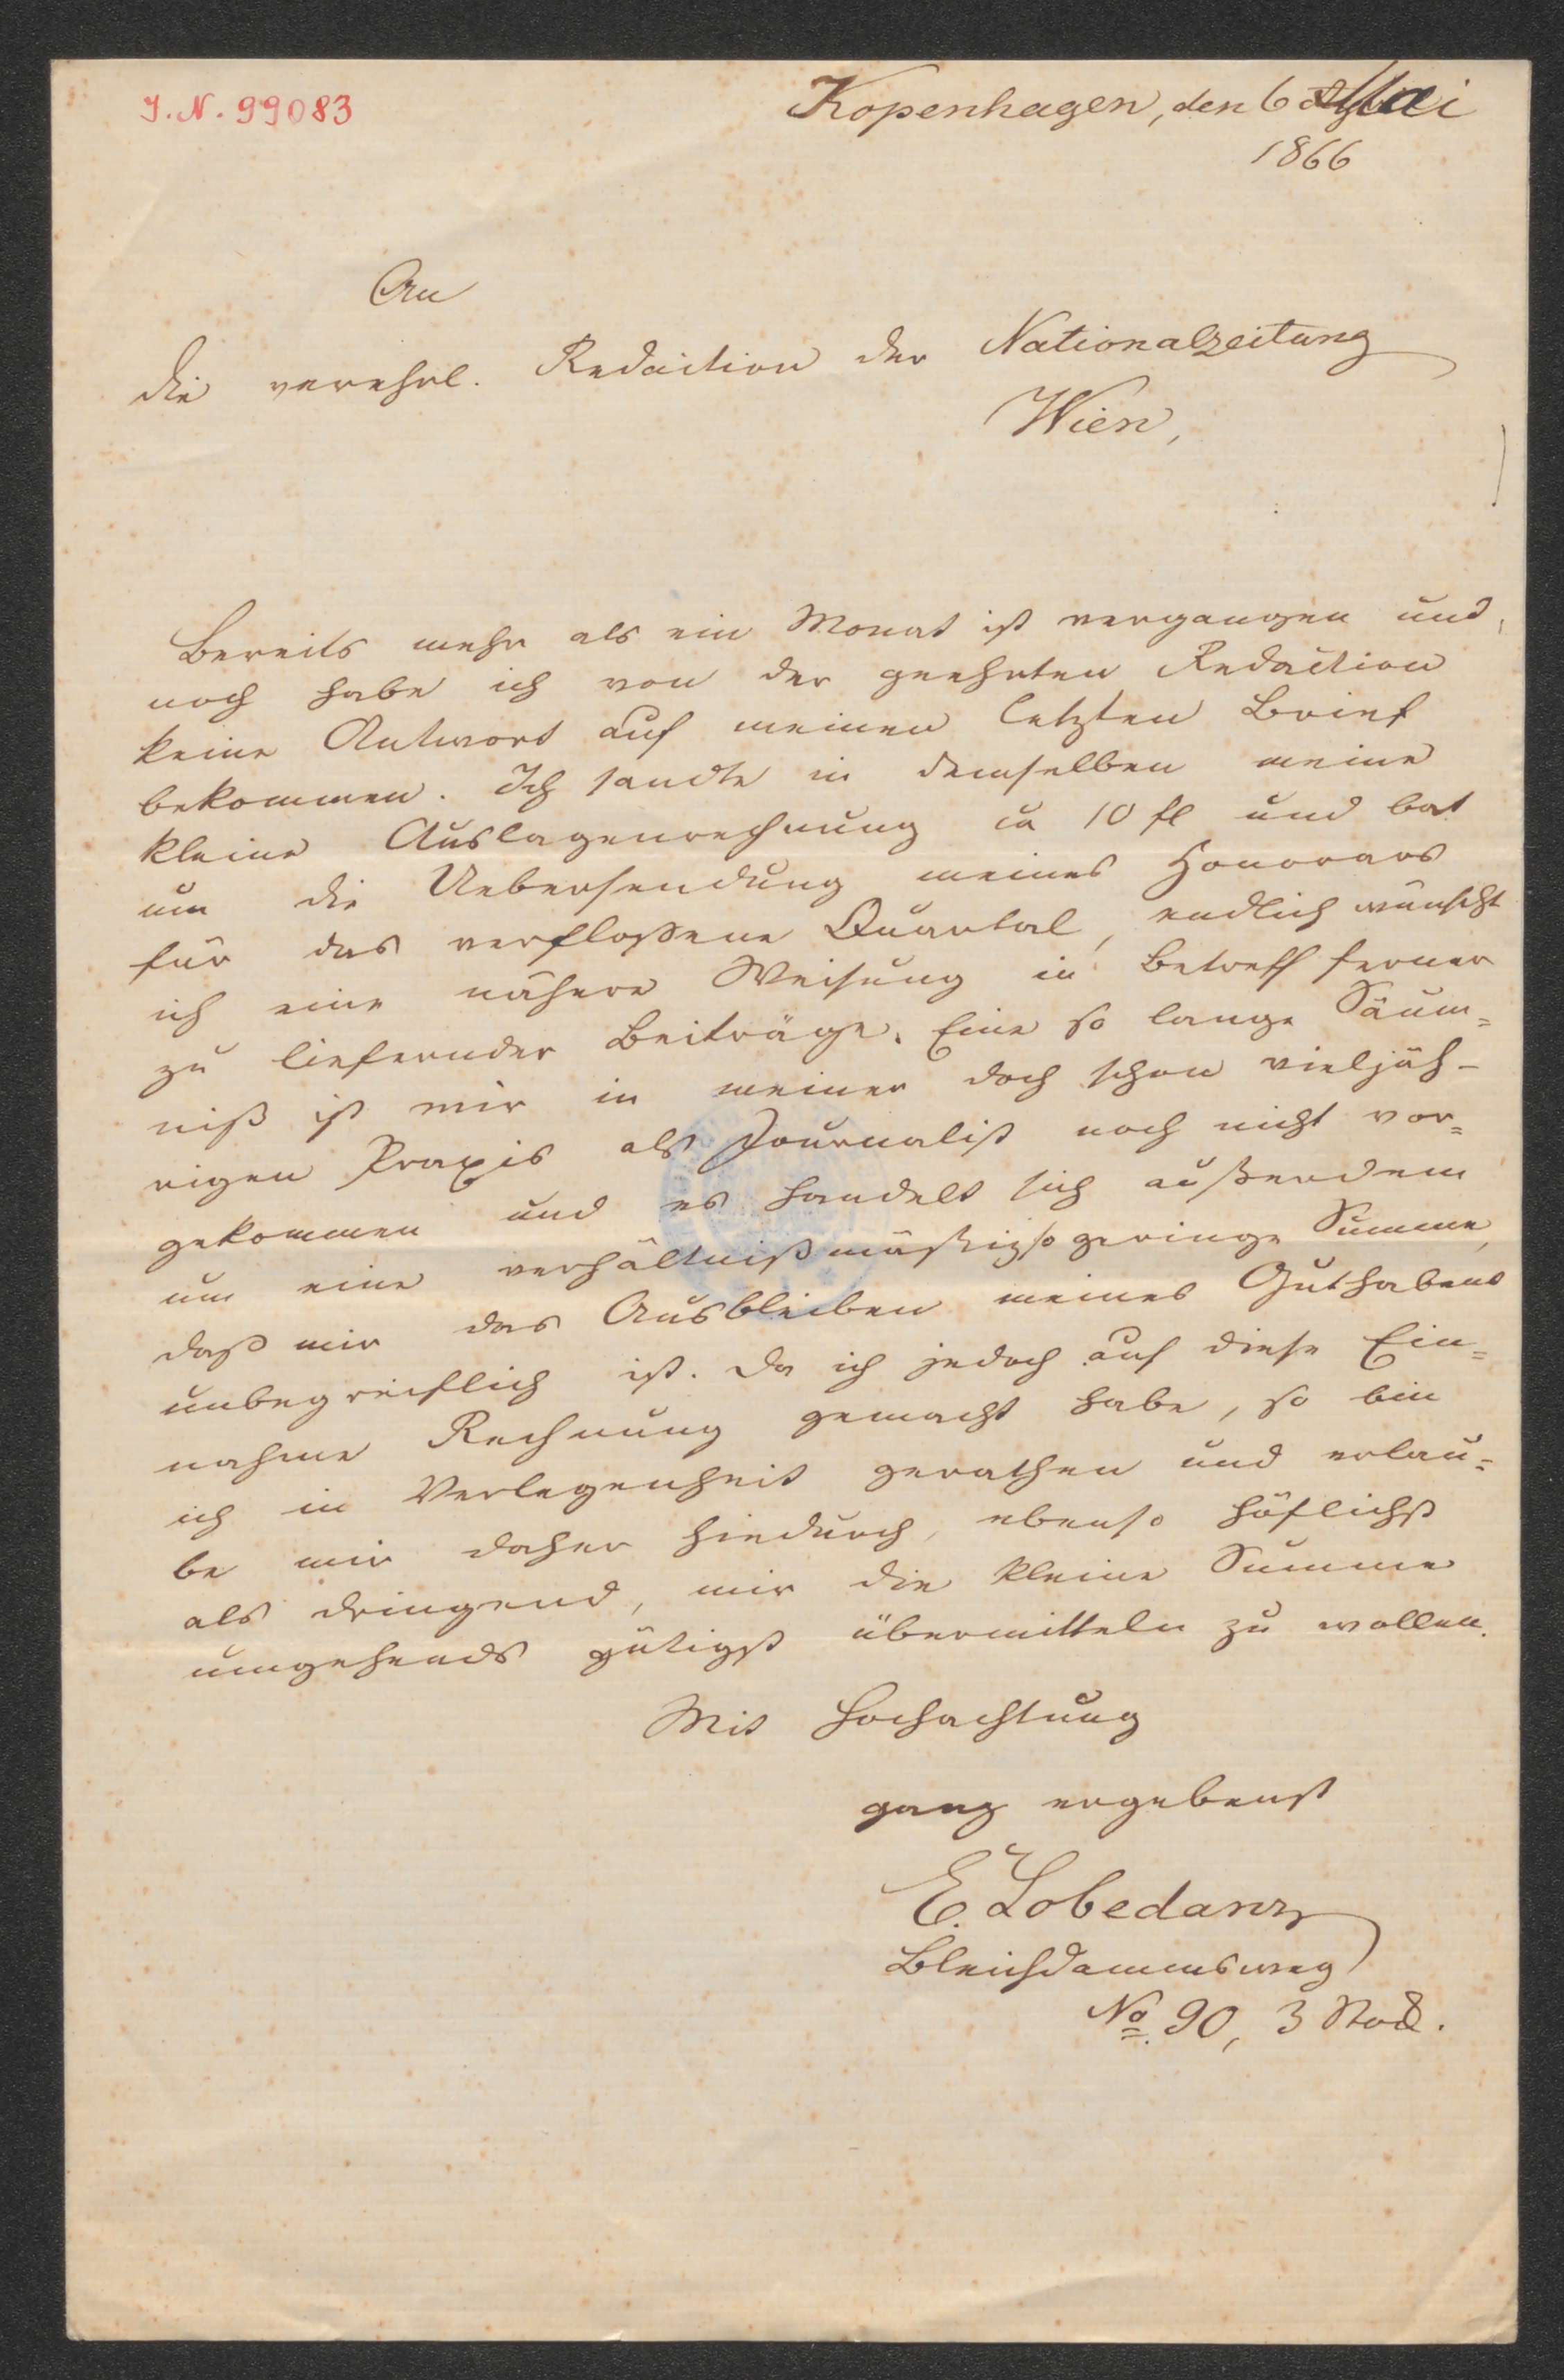 J. N. 99083
Kopenhagen, den 6 Mai
1866
An
die verehrl. Redaction der Nationalzeitung
Wien,
Bereits mehr als ein Monat ist vergangen und
noch habe ich von der geehrten Redaction
keine Antwort auf meinen letzten Brief
bekommen. Ich sandte in demselben meine
kleine Auslagenrechnung ca 10 fl und bat
um die Uebersendung meines Honorars
für das verfloßene Quartal, endlich wünscht
ich eine nähere Weisung in Betreff ferner
zu liefernder Beiträge. Eine so lange Säum=
niß ist mir in meiner doch schon vieljäh-
rigen Praxis als Journalist noch nicht vor=
gekommen und es handelt sich außerdem
um eine verhältnißmäßig so geringe Summe,
daß mir das Ausbleiben meines Guthabens
unbegreiflich ist. Da ich jedoch auf diese Ein=
nahme Rechnung gemacht habe, so bin
ich in Verlegenheit gerathen und erlau=
be mir daher hiedurch, ebenso höflichst
als dringend, mir die kleine Summe
umgehends gütigst übermitteln zu wollen.
Mit Hochachtung
ganz ergebenst
E. Lobedanz
Bleichdammsweg
No. 90, 3 Stock.